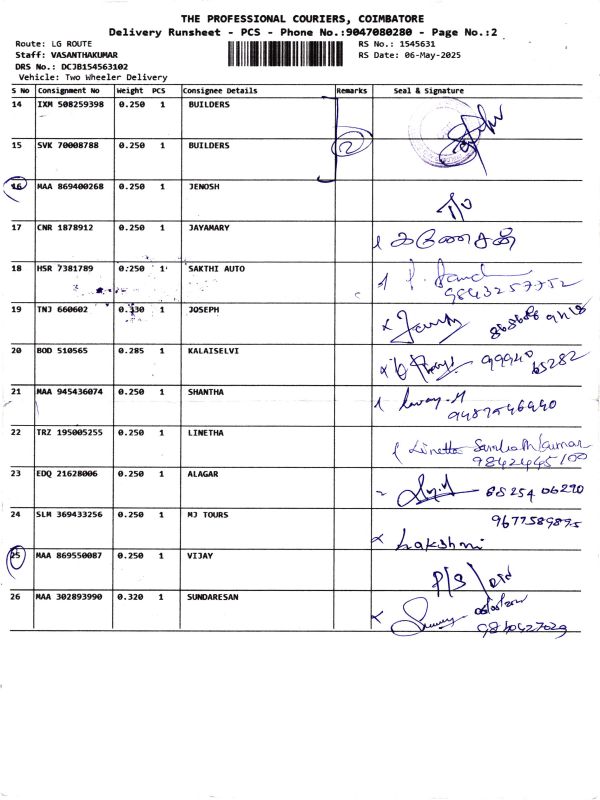 THE PROFESSIONAL COURIERS, COIMBATORE
Delivery Runsheet - PCS - Phone No.:9047080280 - Page No.:2
Route: LG ROUTE RS No.: 1545631
Staff: VASANTHAKUMAR RS Date: 06-May-2025
DRS No.: DCJB154563102
Vehicle: Two Wheeler Delivery
S No Consignment No Weight PCS Consignee Details Remarks Seal & Signature
14 IXM 508259398 0.250 1 BUILDERS
15 SVK 70008788 0.250 1 BUILDERS 2
16 MAA 869400268 0.250 1 JENOSH
17 CNR 1878912 0.250 1 JAYAMARY
18 HSR 7381789 0.250 1 SAKTHI AUTO
9843257752
19 TNJ 660602 0.330 1 JOSEPH
20 BOD 510565 0.285 1 KALAISELVI 99940 65282
21 MAA 945436074 0.250 1 SHANTHA
9487546440
22 TRZ 195005255 0.250 1 LINETHA Linetta
9842445100
23 EDQ 21628006 0.250 1 ALAGAR 88254 06290
24 SLM 369433256 0.250 1 MJ TOURS 9677589895
Lakshmi
25 MAA 869550087 0.250 1 VIJAY P/S
26 MAA 302893990 0.320 1 SUNDARESAN